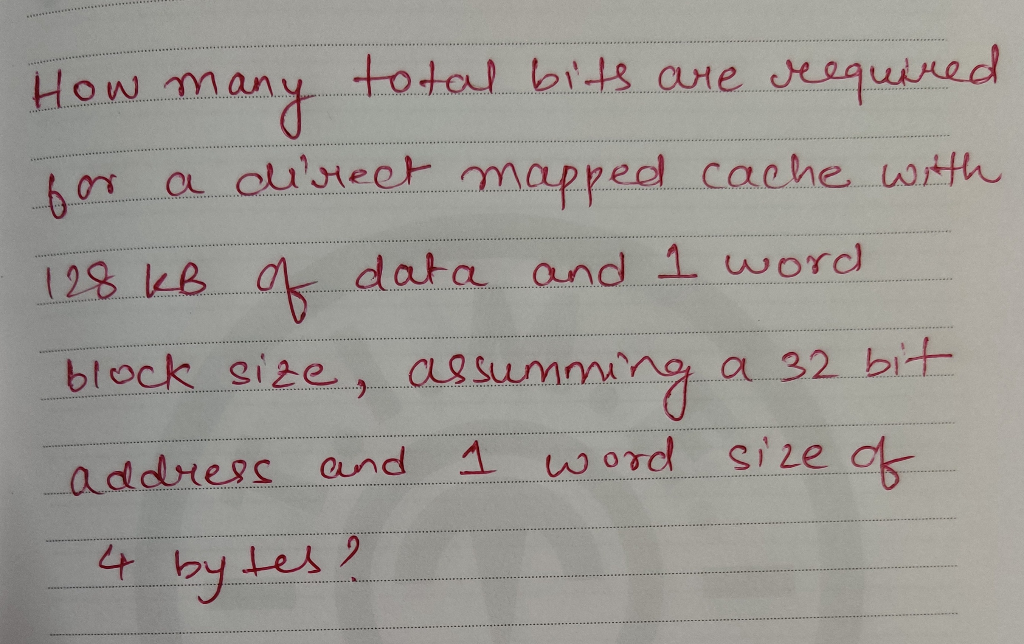 How many total bits are required
for a direct mapped cache with
128 KB of data and 1 word
block size, assumming a 32 bit
address and 1 word size of
4 bytes?